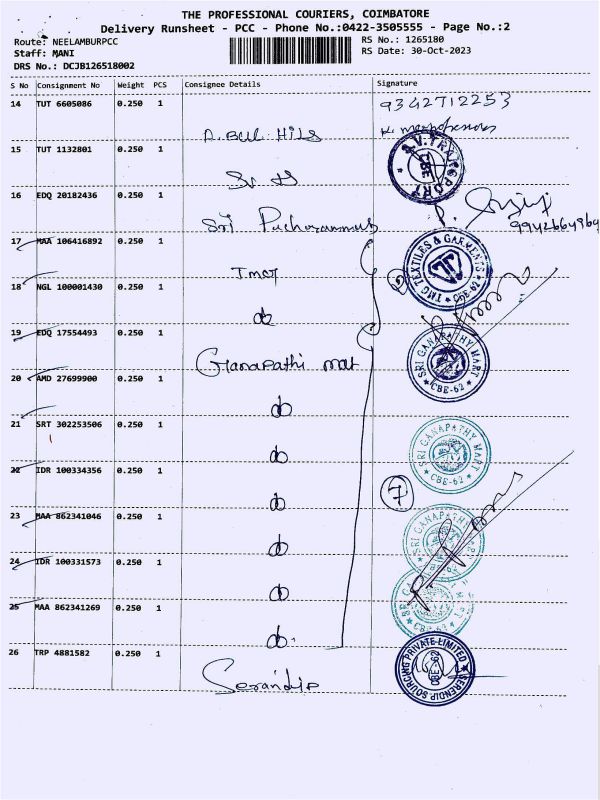 THE PROFESSIONAL COURIERS, COIMBATORE
Delivery Runsheet - PCC - Phone No.:0422-3505555 - Page No.:2
Route: NEELAMBURPCC RS No.: 1265180
Staff: MANI RS Date: 30-Oct-2023
DRS No.: DCJB126518002
S No Consignment No Weight PCS Consignee Details Signature
14 TUT 6605086 0.250 1 9342712253
15 TUT 1132801 0.250 1
S.V. TRANSPORT CBE
16 EDQ 20182436 0.250 1 Sri
17 MAA 106416892 0.250 1 TMG TEXTILES & GARMENTS CBE-62
18 NGL 100001430 0.250 1 do 2
19 EDQ 17554493 0.250 1 Ganapathi mat SRI GANAPATHY MART CBE-62
20 AMD 27699900 0.250 1 do
21 SRT 302253506 0.250 1 do SRI GANAPATHY MART CBE-62
22 IDR 100334356 0.250 1 do 7
23 MAA 862341046 0.250 1 do SRI GANAPATHY MART
24 IDR 100331573 0.250 1 do SRI GANAPATHY MART CBE-62
25 MAA 862341269 0.250 1 do
26 TRP 4881582 0.250 1 Serandip SERENDIP SOURCING PRIVATE LIMITED CBE-62